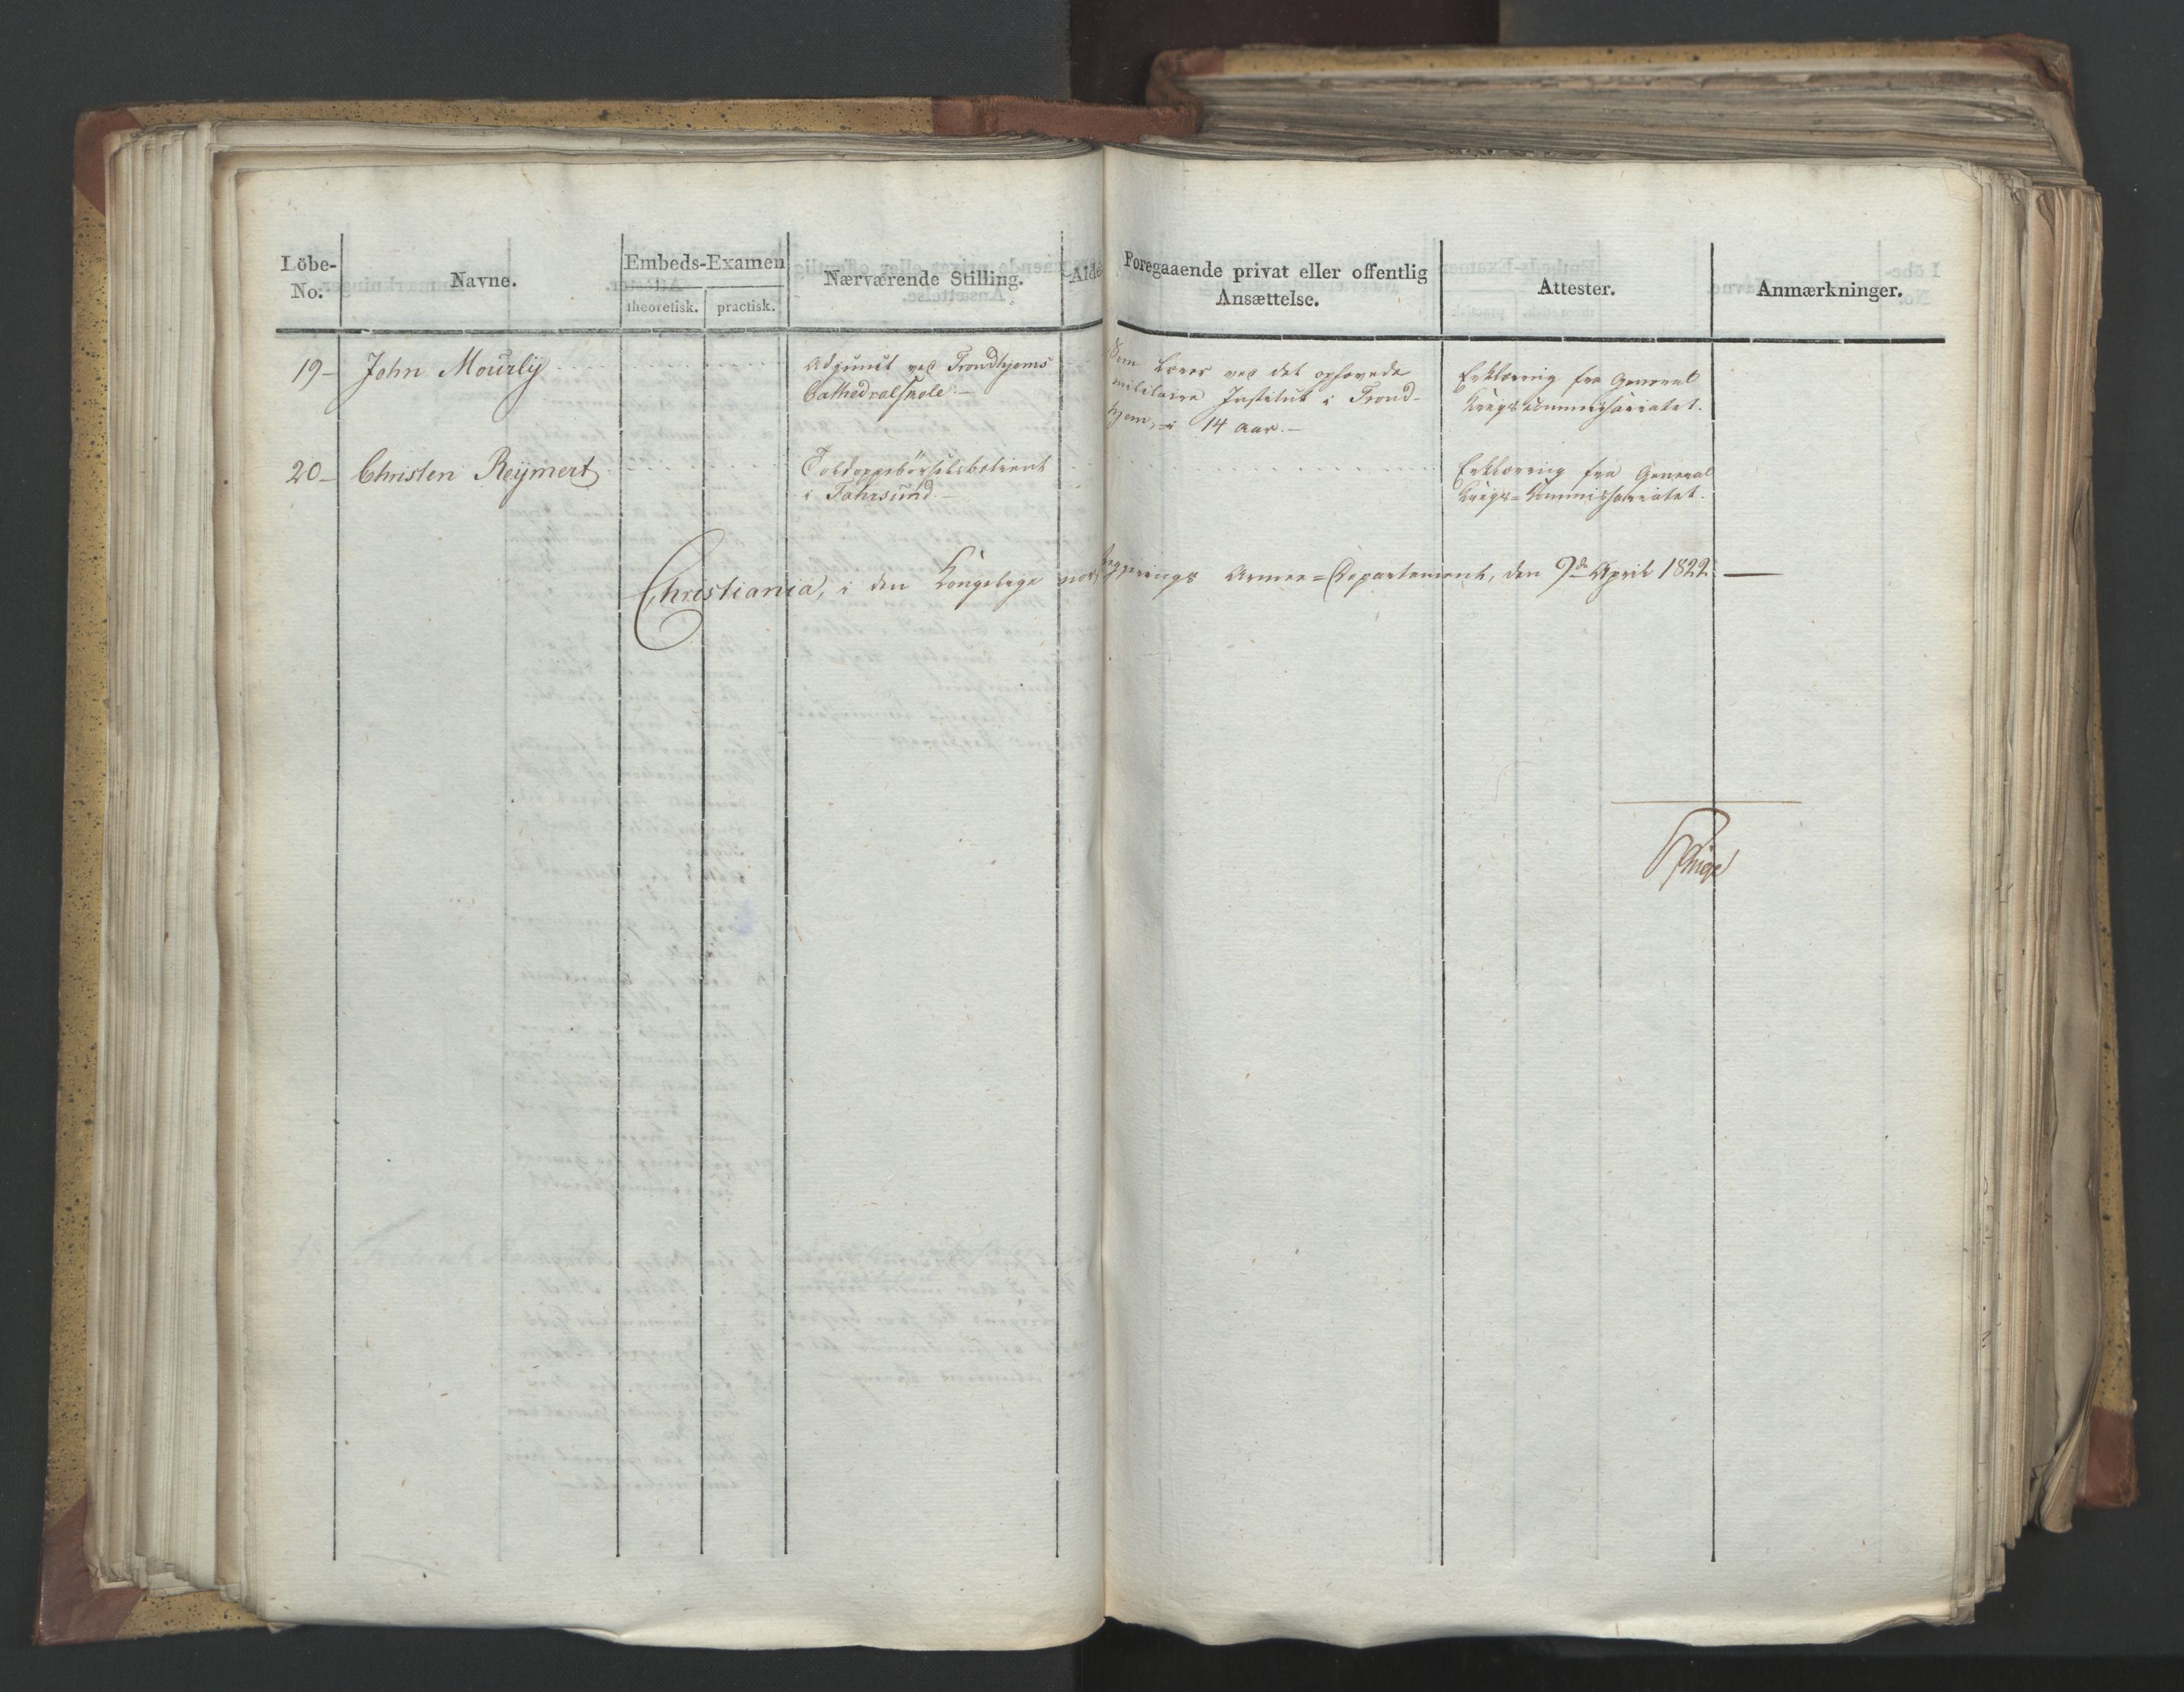 Löbe-
No.
Navne.
Embeds-Examen
theoretisk.
practisk.
Nærværende Stilling.
Alde
Foregaaende privat eller offentlig
Ansættelse.
Attester.
Anmærkninger.
19-
John Mourly
Adjunct ved Trondhjems
Cathedralskole.-
Som Lærer ved det ophævede
militaire Institut i Trond-
hjem, i 14 Aar.-
Erklæring fra General
Krigskommissariatet.
20-
Christen Reymert
Toldoppebörselsbetient
i Fahrsund.-
Erklæring fra General
Krigs=Kommissariatet.
Christiania, i den Kongelige norske Regjerings Armee=Departement, den 9de April 1822.-